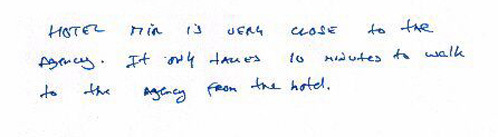 HOTEL MIR IS VERY CLOSE to the
Agency. It only TAKES 10 minutes to walk
to the Agency from the hotel.